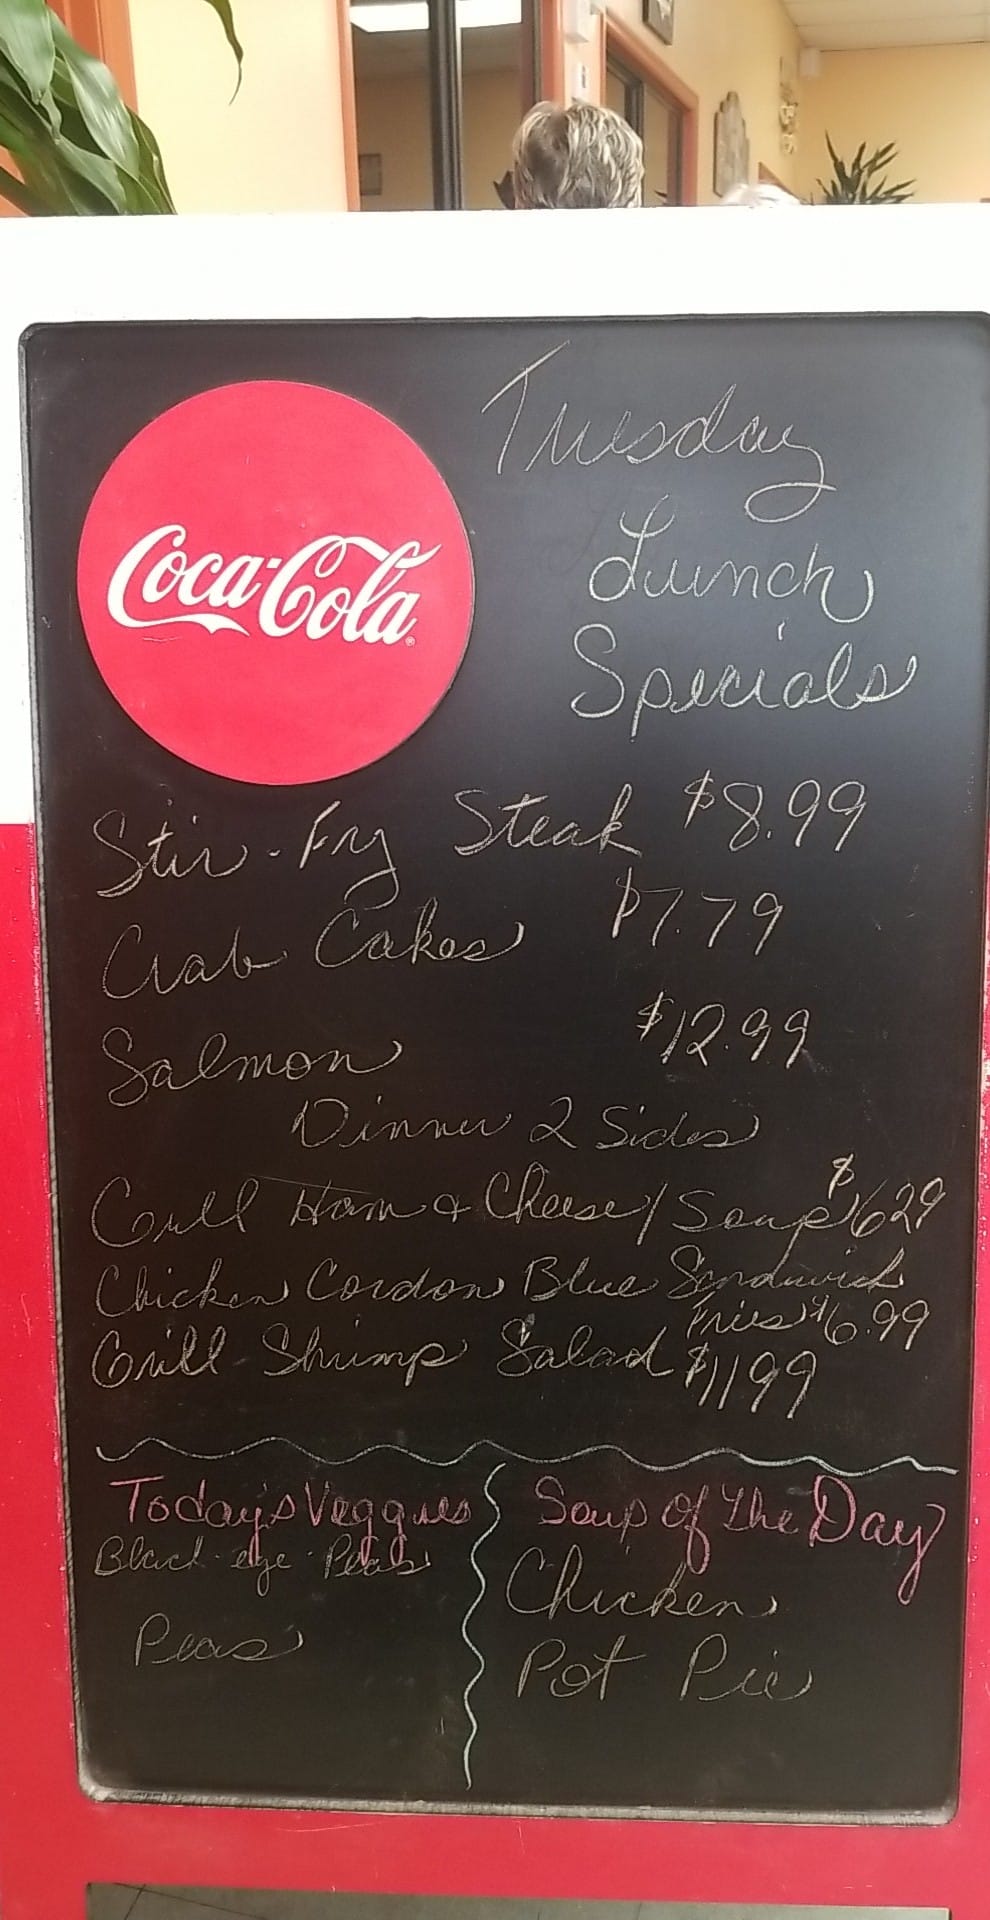 Coca-Cola
Tuesday
Lunch
Specials
Stir-Fry Steak $8.99
Crab Cakes $7.79
Salmon $12.99
Dinner 2 Sides
Grill Ham & Cheese / Soup $629
Chicken Cordon Blue Sandwich
Fries $6.99
Grill Shrimp Salad $1199
Today's Veggies
Black-eye-Peas
Peas
Soup of The Day
Chicken
Pot Pie